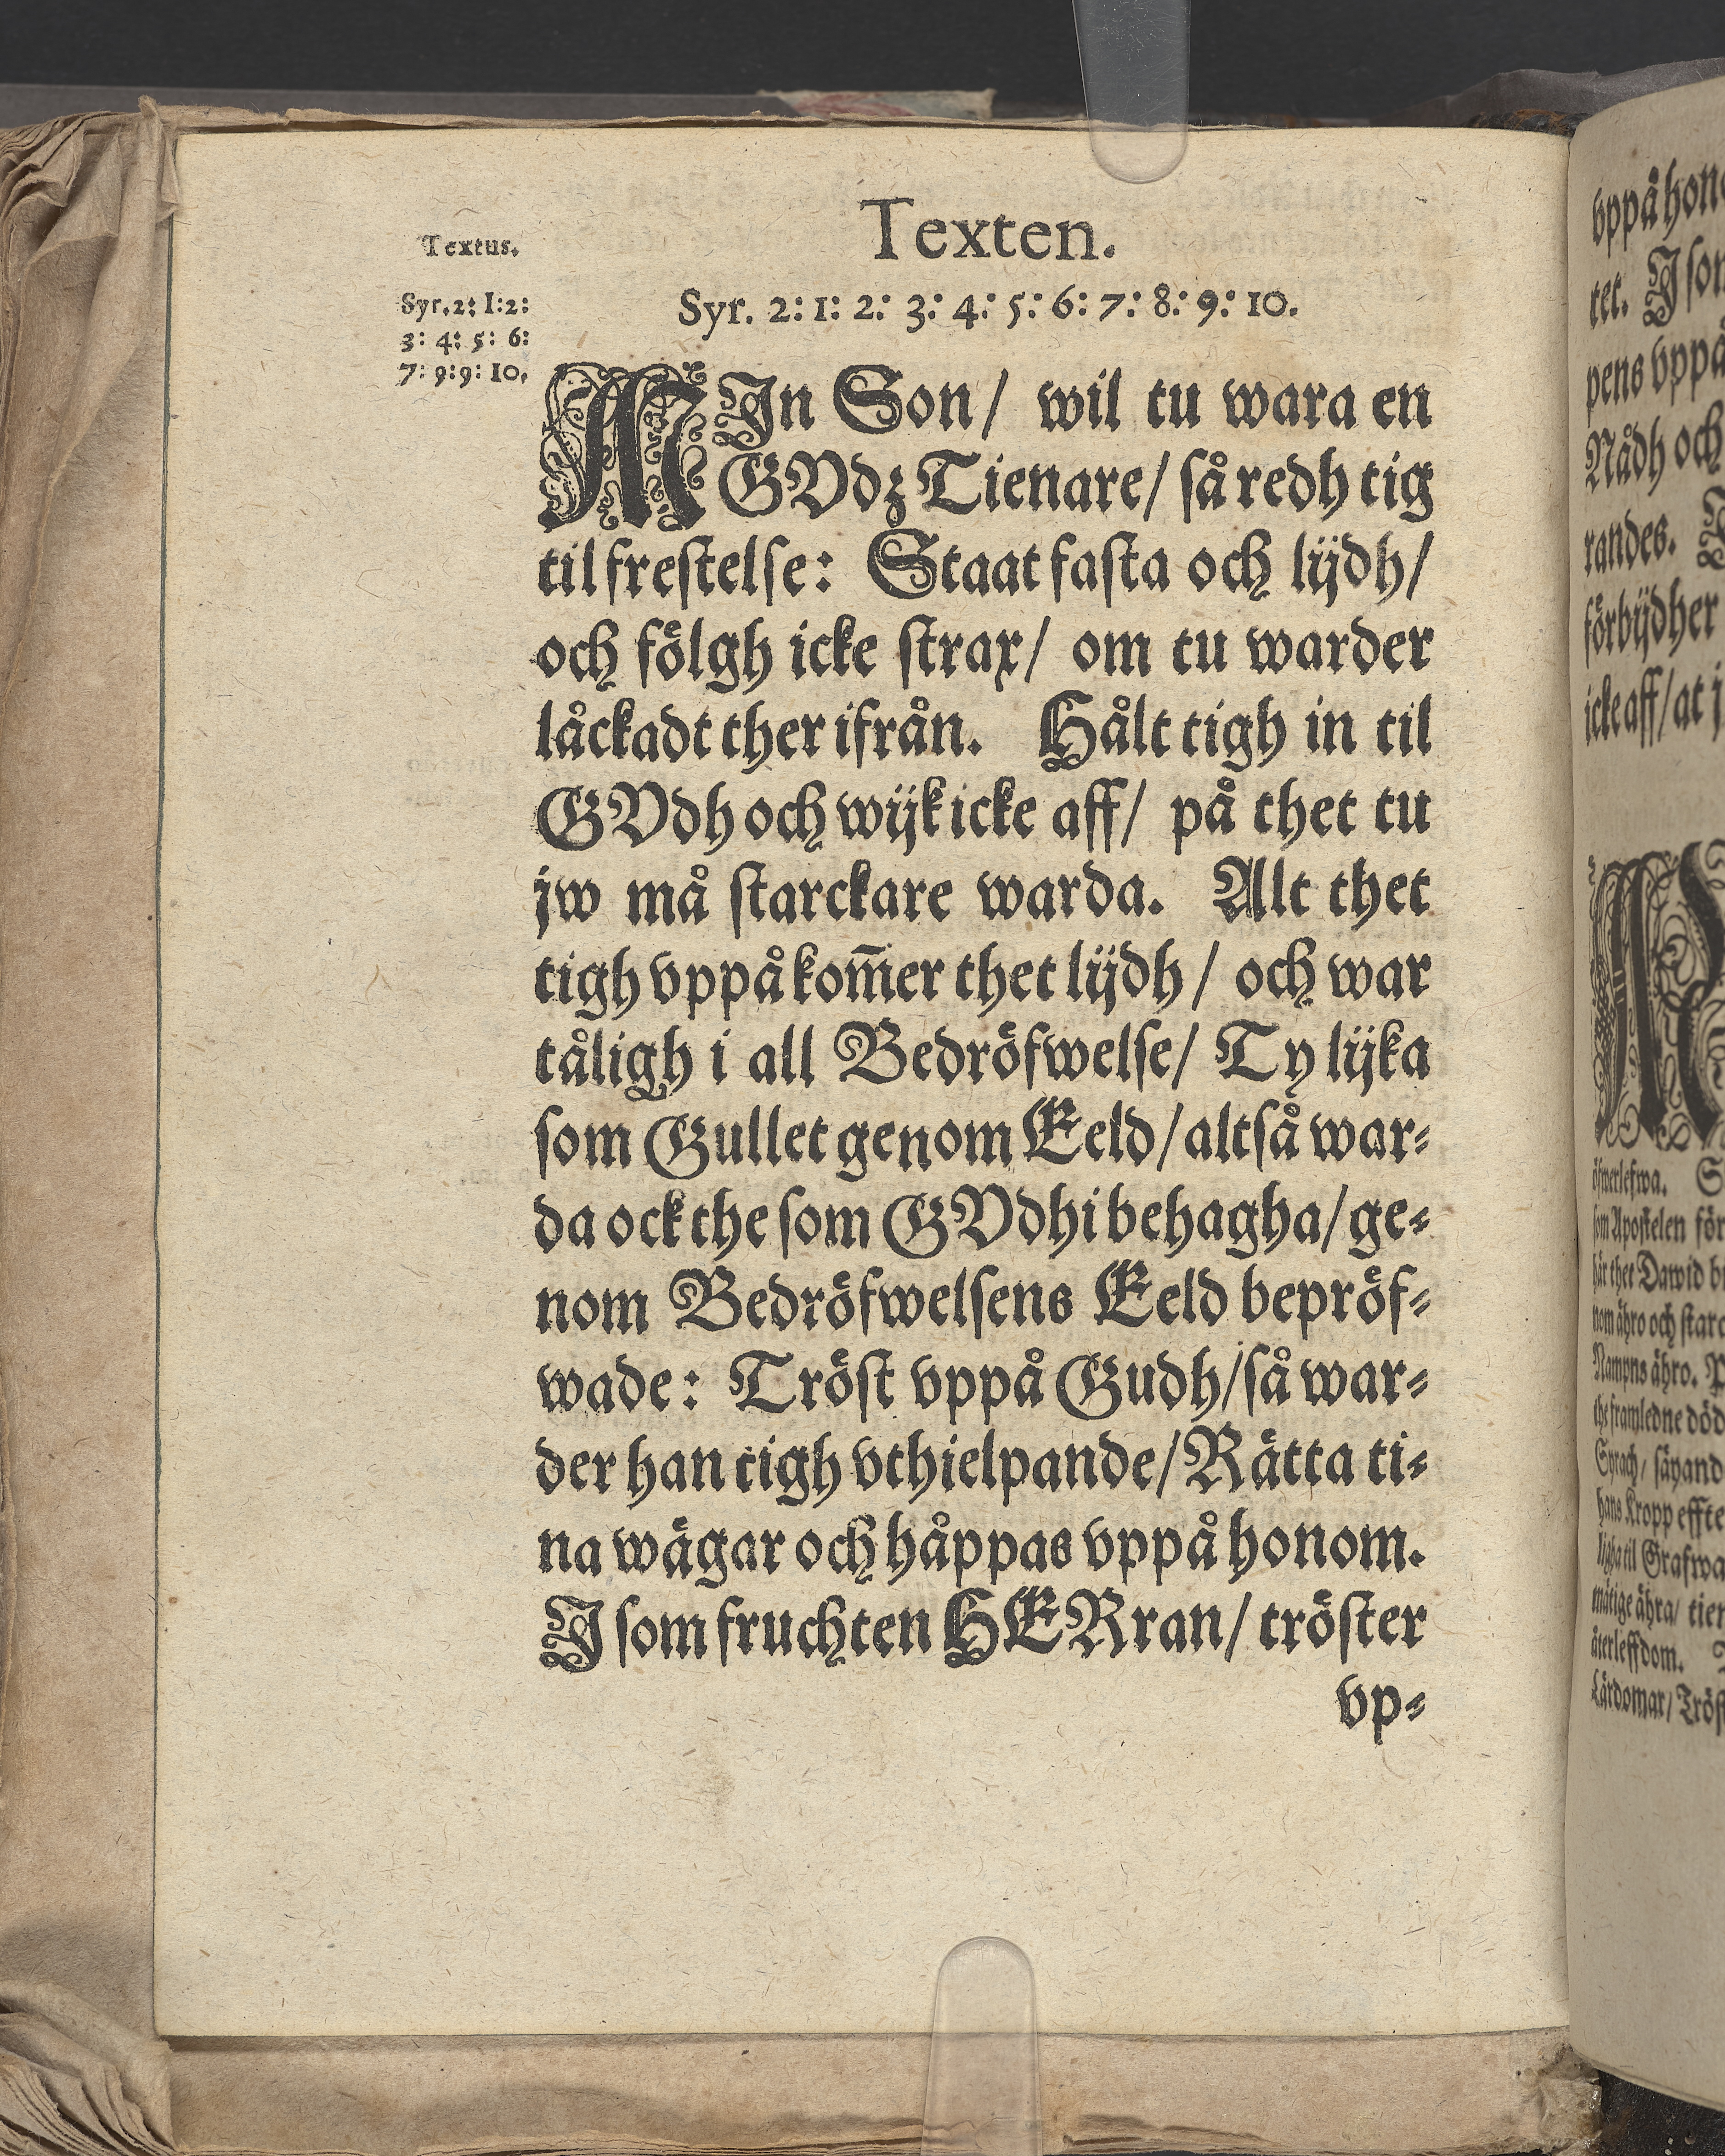 Texten.
Textus.
Syr. 2: 1: 2:
3: 4: 5: 6:
7: 9: 9: 10.
Syr. 2: 1: 2: 3: 4: 5: 6: 7: 8: 9: 10.
MIn Son/ wil tu wara en
GVdz Tienare/ så redh tig
til frestelse: Staat fasta och lijdh/
och fölgh icke strax/ om tu warder
låckadt ther ifrån. Hålt tigh in til
GVdh och wijk icke aff/ på thet tu
jw må starckare warda. Alt thet
tigh vppå kom̅er thet lijdh/ och war
tåligh i all Bedröfwelse/ Ty lijka
som Gullet genom Eeld/ altså war-
da ock the som GVdhi behagha/ ge-
nom Bedröfwelsens Eeld bepröf-
wade: Tröst vppå Gudh/ så war-
der han tigh vthielpande/ Rätta ti-
na wägar och håppas vppå honom.
I som fruchten HERran/ tröster
vp-
vppå
tet. I
pens vppå
Nådh och
randes.
förbijdher
icke aff/ at j
öfwerlefwa.
som Apostelen för
här thet Dawid
nom ähro och
Nampns ähro.
the framledne
Syrach/
hans Kropp
til Grafwa
ähra/
återleffdom.
Lärdomar/